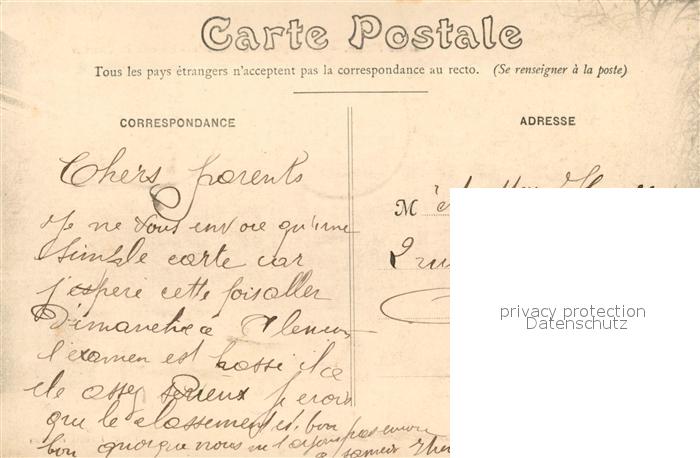 Carte Postale
Tous les pays étrangers n'acceptent pas la correspondance au recto. (Se renseigner à la poste)
CORRESPONDANCE
ADRESSE
Chers parents
Je ne vous envoie qu'une
simple carte car
j'espere cette fois aller
Dimanche a
l'examen est passé il a
ete assez serieux je crois
que le classement est bon
bon quoique nous ne l'ayons pas encore
a samedi
M
2 rue
privacy protection
Datenschutz